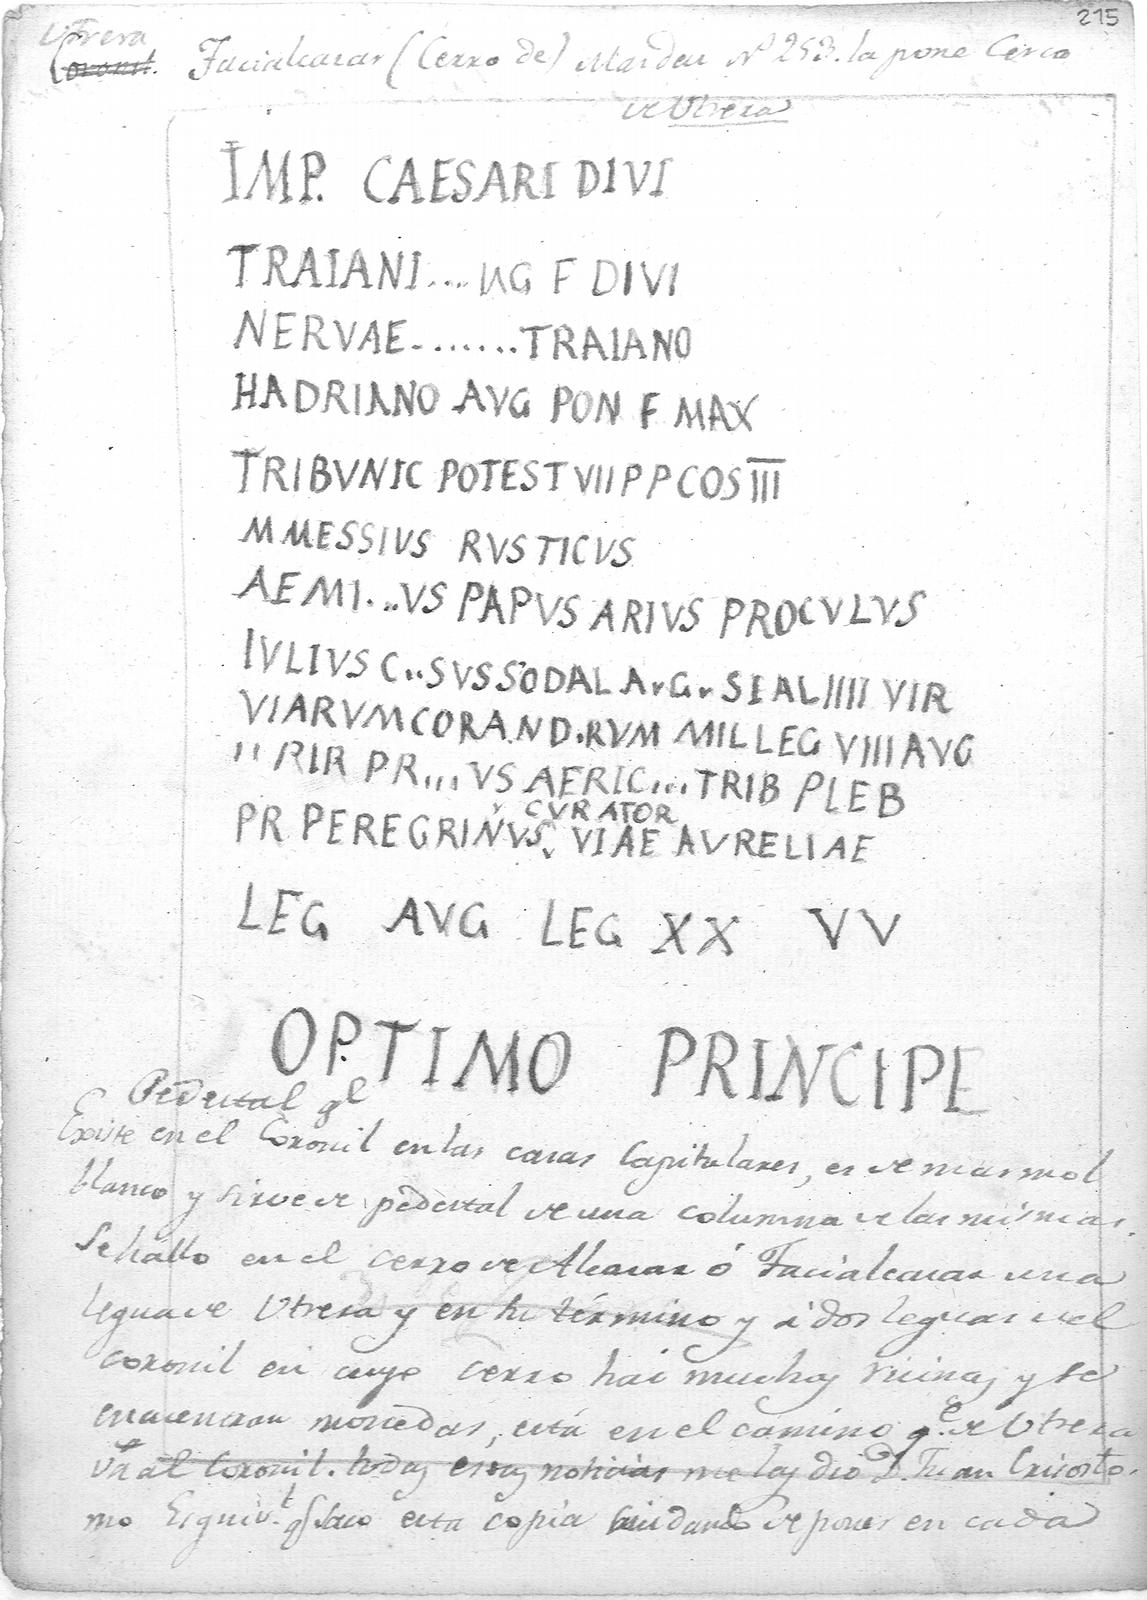 215
Utrera
Coronil. Facialcazar (Cerro de) Masdeu Nº 253. la pone Cerca
de Utrera
IMP. CAESARI DIVI
TRAIANI.... UG F DIVI
NERVAE........TRAIANO
HADRIANO AVG PON F MAX
TRIBVNIC POTEST VII P P COS III
M MESSIVS RVSTICVS
AEMI...VS PAPVS ARIVS PROCVLVS
IVLIVS C..SVS SODAL AVGV SIAL IIII VIR
VIARVM CORAND.RVM MIL LEG VIII AVG
RIR PR....VS AERIC....TRIB PLEB
CVRATOR
PR PEREGRINVS VIAE AVRELIAE
LEG AVG LEG XX VV
OPTIMO PRINCIPE
Pedestal ql
Existe en el Coronil en las casas Capitulares, es de marmol
blanco y sirve de pedestal de una columna de las mismas.
Se hallo en el cerro de Alcazar ó Facialcazar una
legua de Utrera y en su término y á dos leguas del
coronil en cuyo cerro hai muchas ruinas y se
encuentran monedas, está en el camino q.e de Utrera
va al Coronil. todas estas noticias me las dio D. Juan Crisosto-
mo Esquiv.l q saco esta copia cuidando de poner en cada